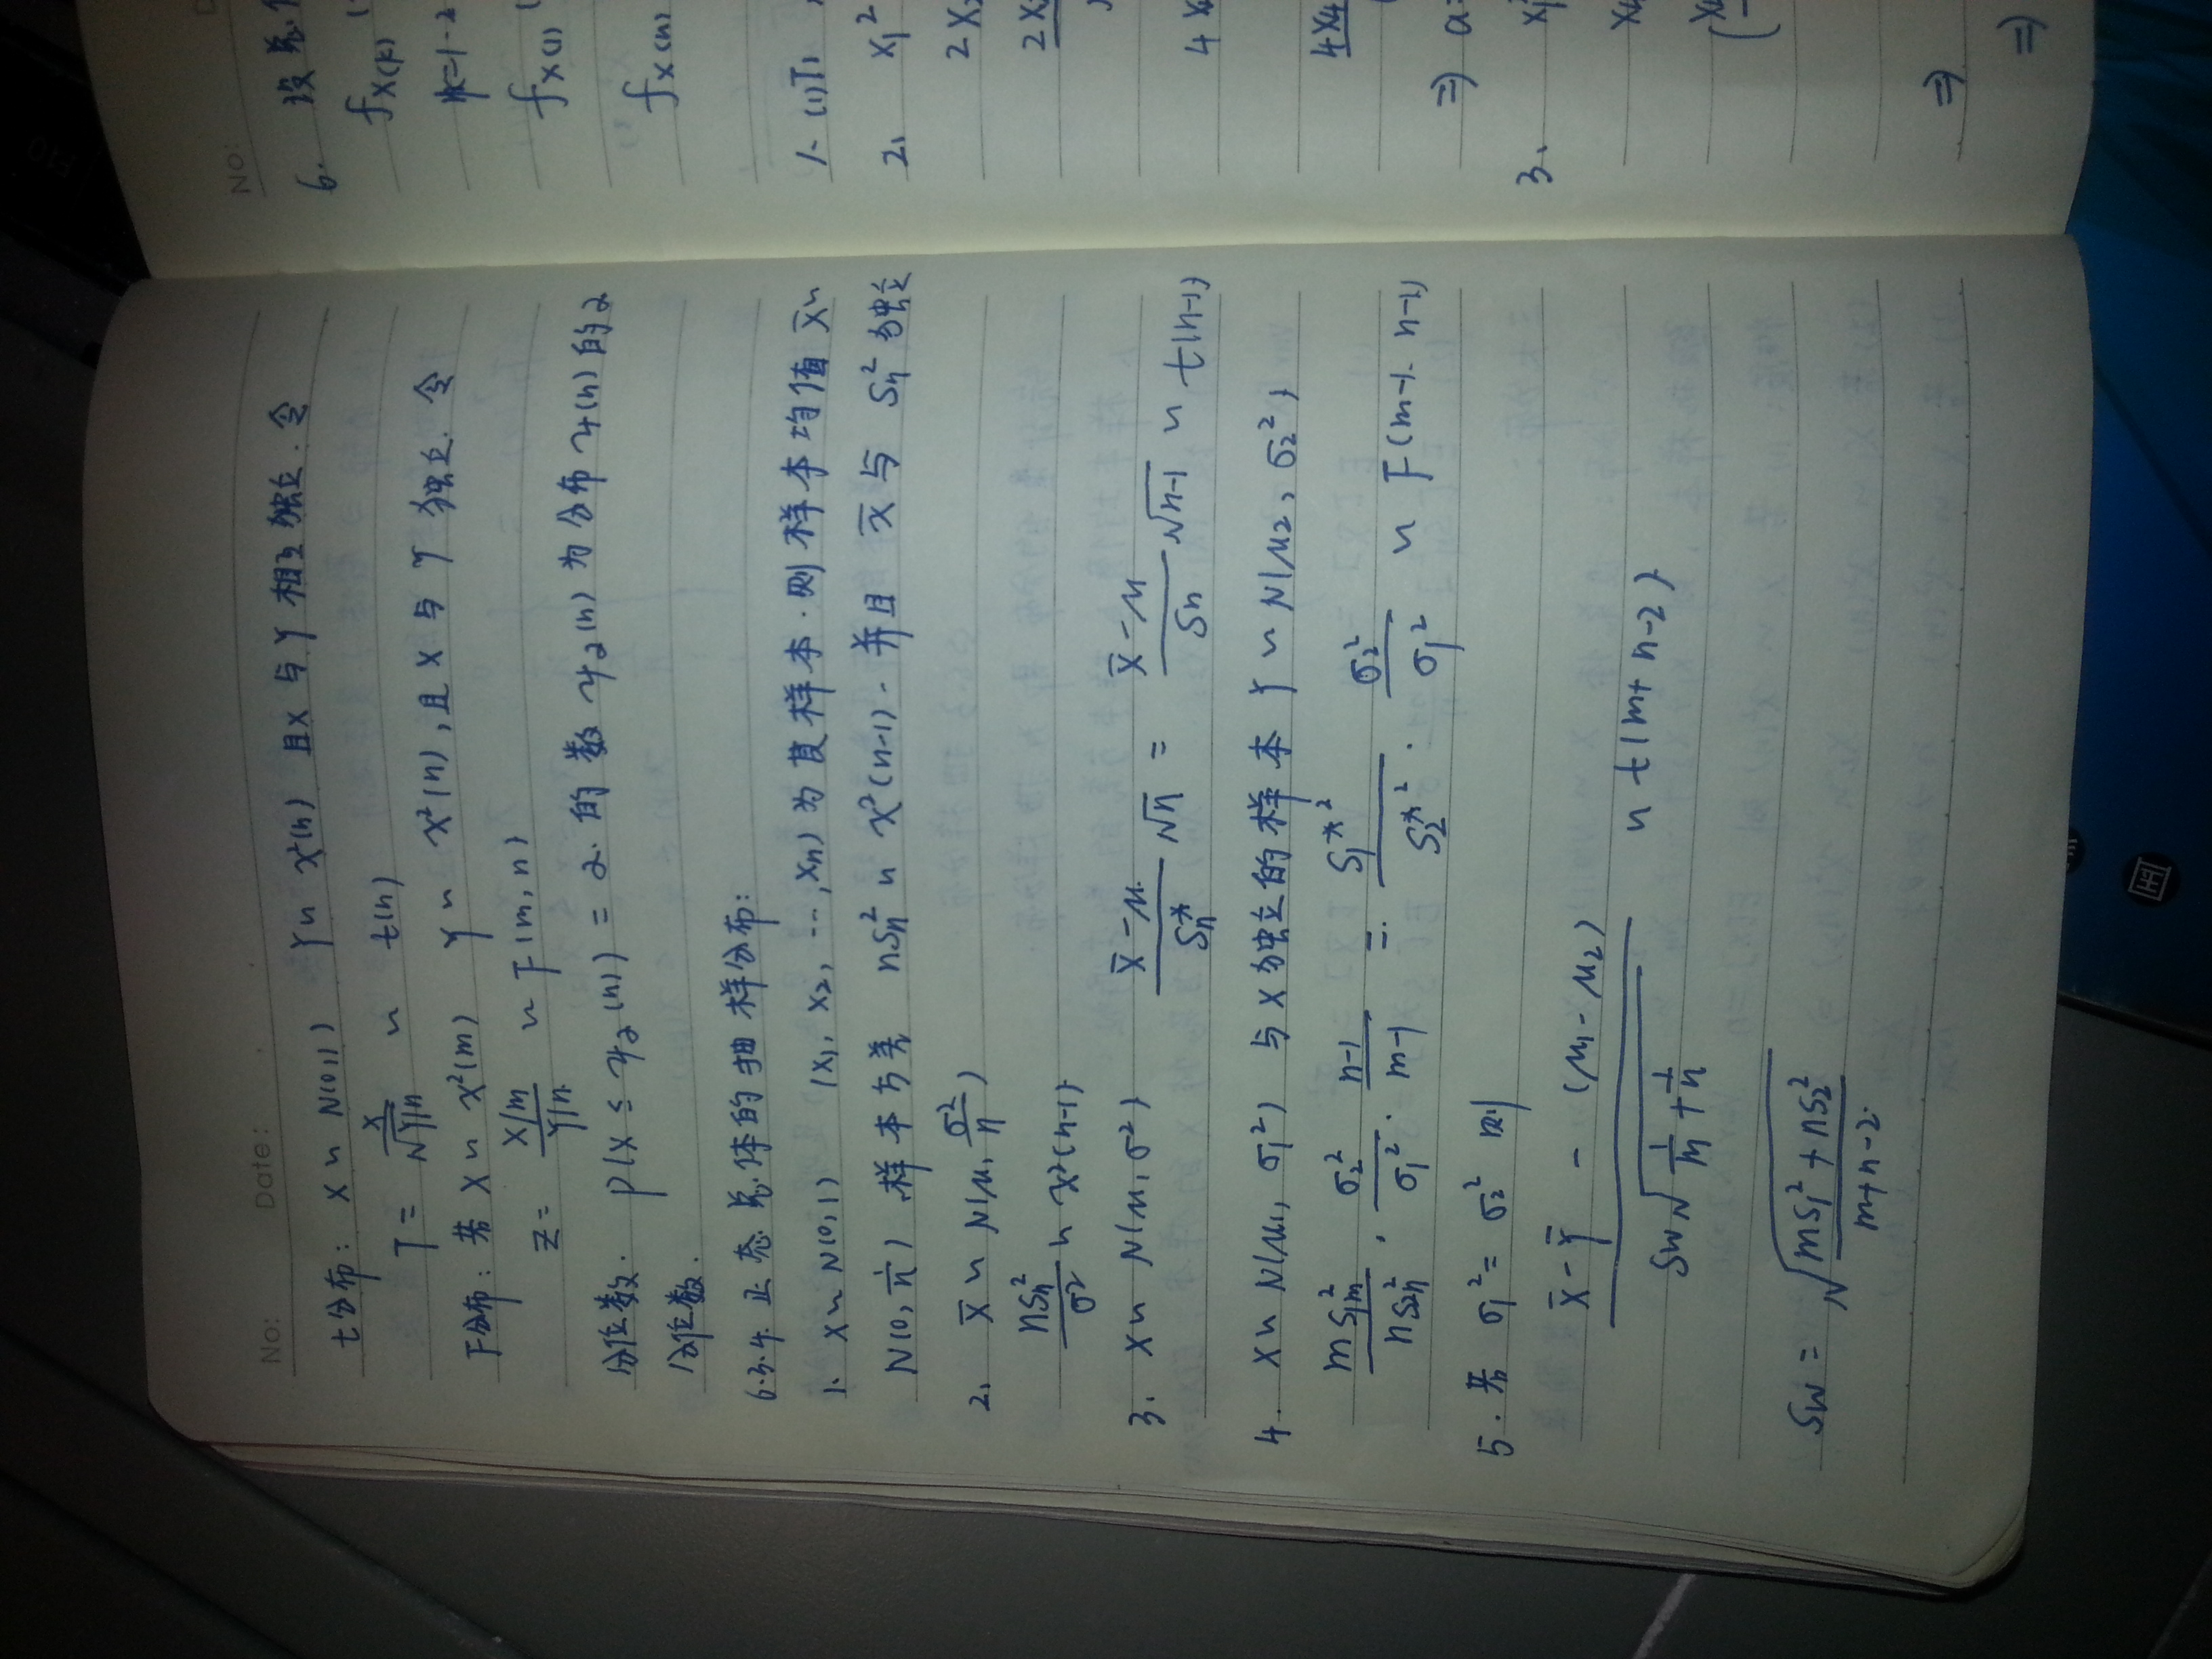 No: Date:
t分布: X ~ N(0,1) Y ~ χ²(n) 且X与Y相互独立.令
T = X/√(Y/n) ~ t(n)
F分布: 若 X ~ χ²(m) Y ~ χ²(n), 且X与Y 独立.令
Z = (X/m)/(Y/n) ~ F(m, n)
分位数. P(X ≤ ψ_α(n)) = α. 的数 ψ_α(n) 为分布 ψ(n) 的 α
分位数.
6.3.4. 正态总体的抽样分布:
1. X ~ N(0,1) (X₁, X₂, ..., Xn) 为其样本.则样本均值 X̄ ~
N(0, 1/n) 样本方差 nSn² ~ χ²(n-1). 并且 X̄ 与 Sn² 独立
2. X̄ ~ N(μ, σ²/n)
nSn²/σ² ~ χ²(n-1)
3. X ~ N(μ, σ²) (X̄-μ)/Sn* √n = (X̄-μ)/Sn √(n-1) ~ t(n-1)
4. X ~ N(μ₁, σ₁²) 与X独立的样本 Y ~ N(μ₂, σ₂²)
mS₁m²/nS₂n² · σ₂²/σ₁² · (n-1)/(m-1) = S₁*²/S₂*² · σ₂²/σ₁² ~ F(m-1. n-1)
5. 若 σ₁² = σ₂² 则
(X̄-Ȳ - (μ₁-μ₂))/(Sw√(1/m + 1/n)) ~ t(m+n-2)
Sw = √((mS₁² + nS₂²)/(m+n-2))
No:
6. 设总
f_X(k)
k=1-2
f_X(1)
f_X(n)
1. (1) T₁
2. X₁²
2X
2X
4X
4X4
⇒ a=
3. X₁
⇒
⇒
国